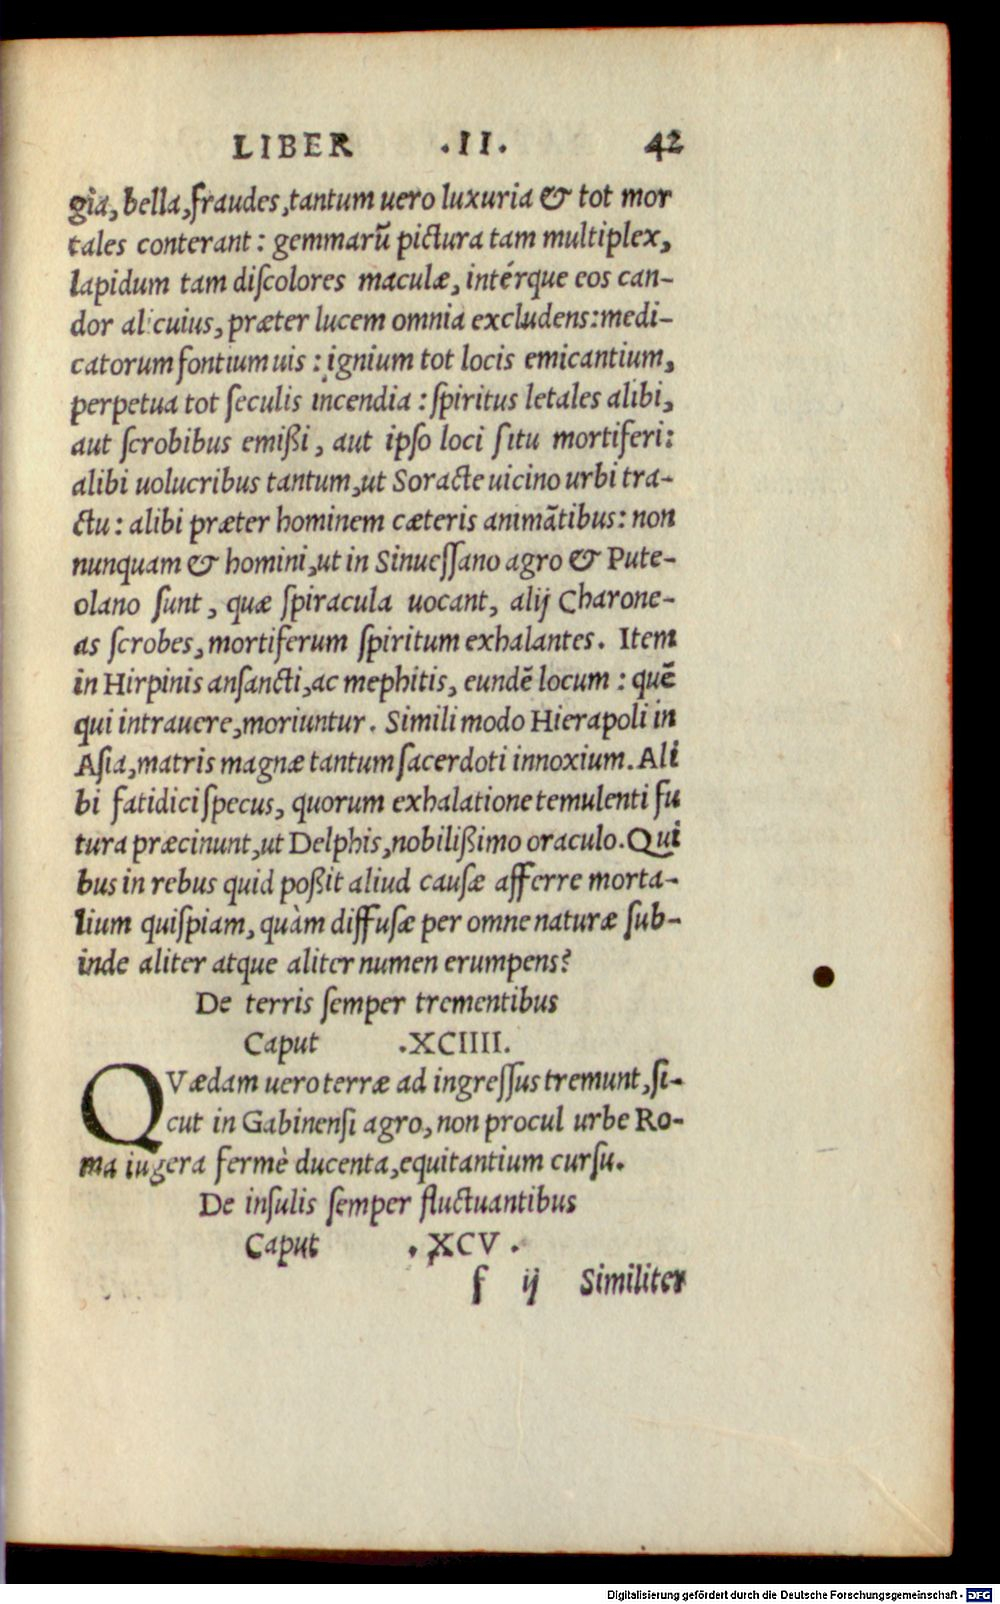 LIBER .II. 42
gia, bella, fraudes, tantum uero luxuria & tot mor
tales conterant: gemmarũ pictura tam multiplex,
lapidum tam diſcolores maculæ, intérque eos can-
dor alicuius, præter lucem omnia excludens: medi-
catorum fontium uis: ignium tot locis emicantium,
perpetua tot ſeculis incendia: ſpiritus letales alibi,
aut ſcrobibus emißi, aut ipſo loci ſitu mortiferi:
alibi uolucribus tantum, ut Soracte uicino urbi tra-
ctu: alibi præter hominem cæteris animãtibus: non
nunquam & homini, ut in Sinueſſano agro & Pute-
olano ſunt, quæ ſpiracula uocant, alij Charone-
as ſcrobes, mortiferum ſpiritum exhalantes. Item
in Hirpinis anſancti, ac mephitis, eundẽ locum: quẽ
qui intrauere, moriuntur. Simili modo Hierapoli in
Aſia, matris magnæ tantum ſacerdoti innoxium. Ali
bi fatidici ſpecus, quorum exhalatione temulenti fu
tura præcinunt, ut Delphis, nobilißimo oraculo. Qui
bus in rebus quid poßit aliud cauſæ afferre morta-
lium quiſpiam, quàm diffuſæ per omne naturæ ſub-
inde aliter atque aliter numen erumpens?
De terris ſemper trementibus
Caput .XCIIII.
QVædam uero terræ ad ingreſſus tremunt, ſi-
cut in Gabinenſi agro, non procul urbe Ro-
ma iugera fermè ducenta, equitantium curſu.
De inſulis ſemper fluctuantibus
Caput .XCV.
f ij Similiter
Digitalisierung gefördert durch die Deutsche Forschungsgemeinschaft - DFG